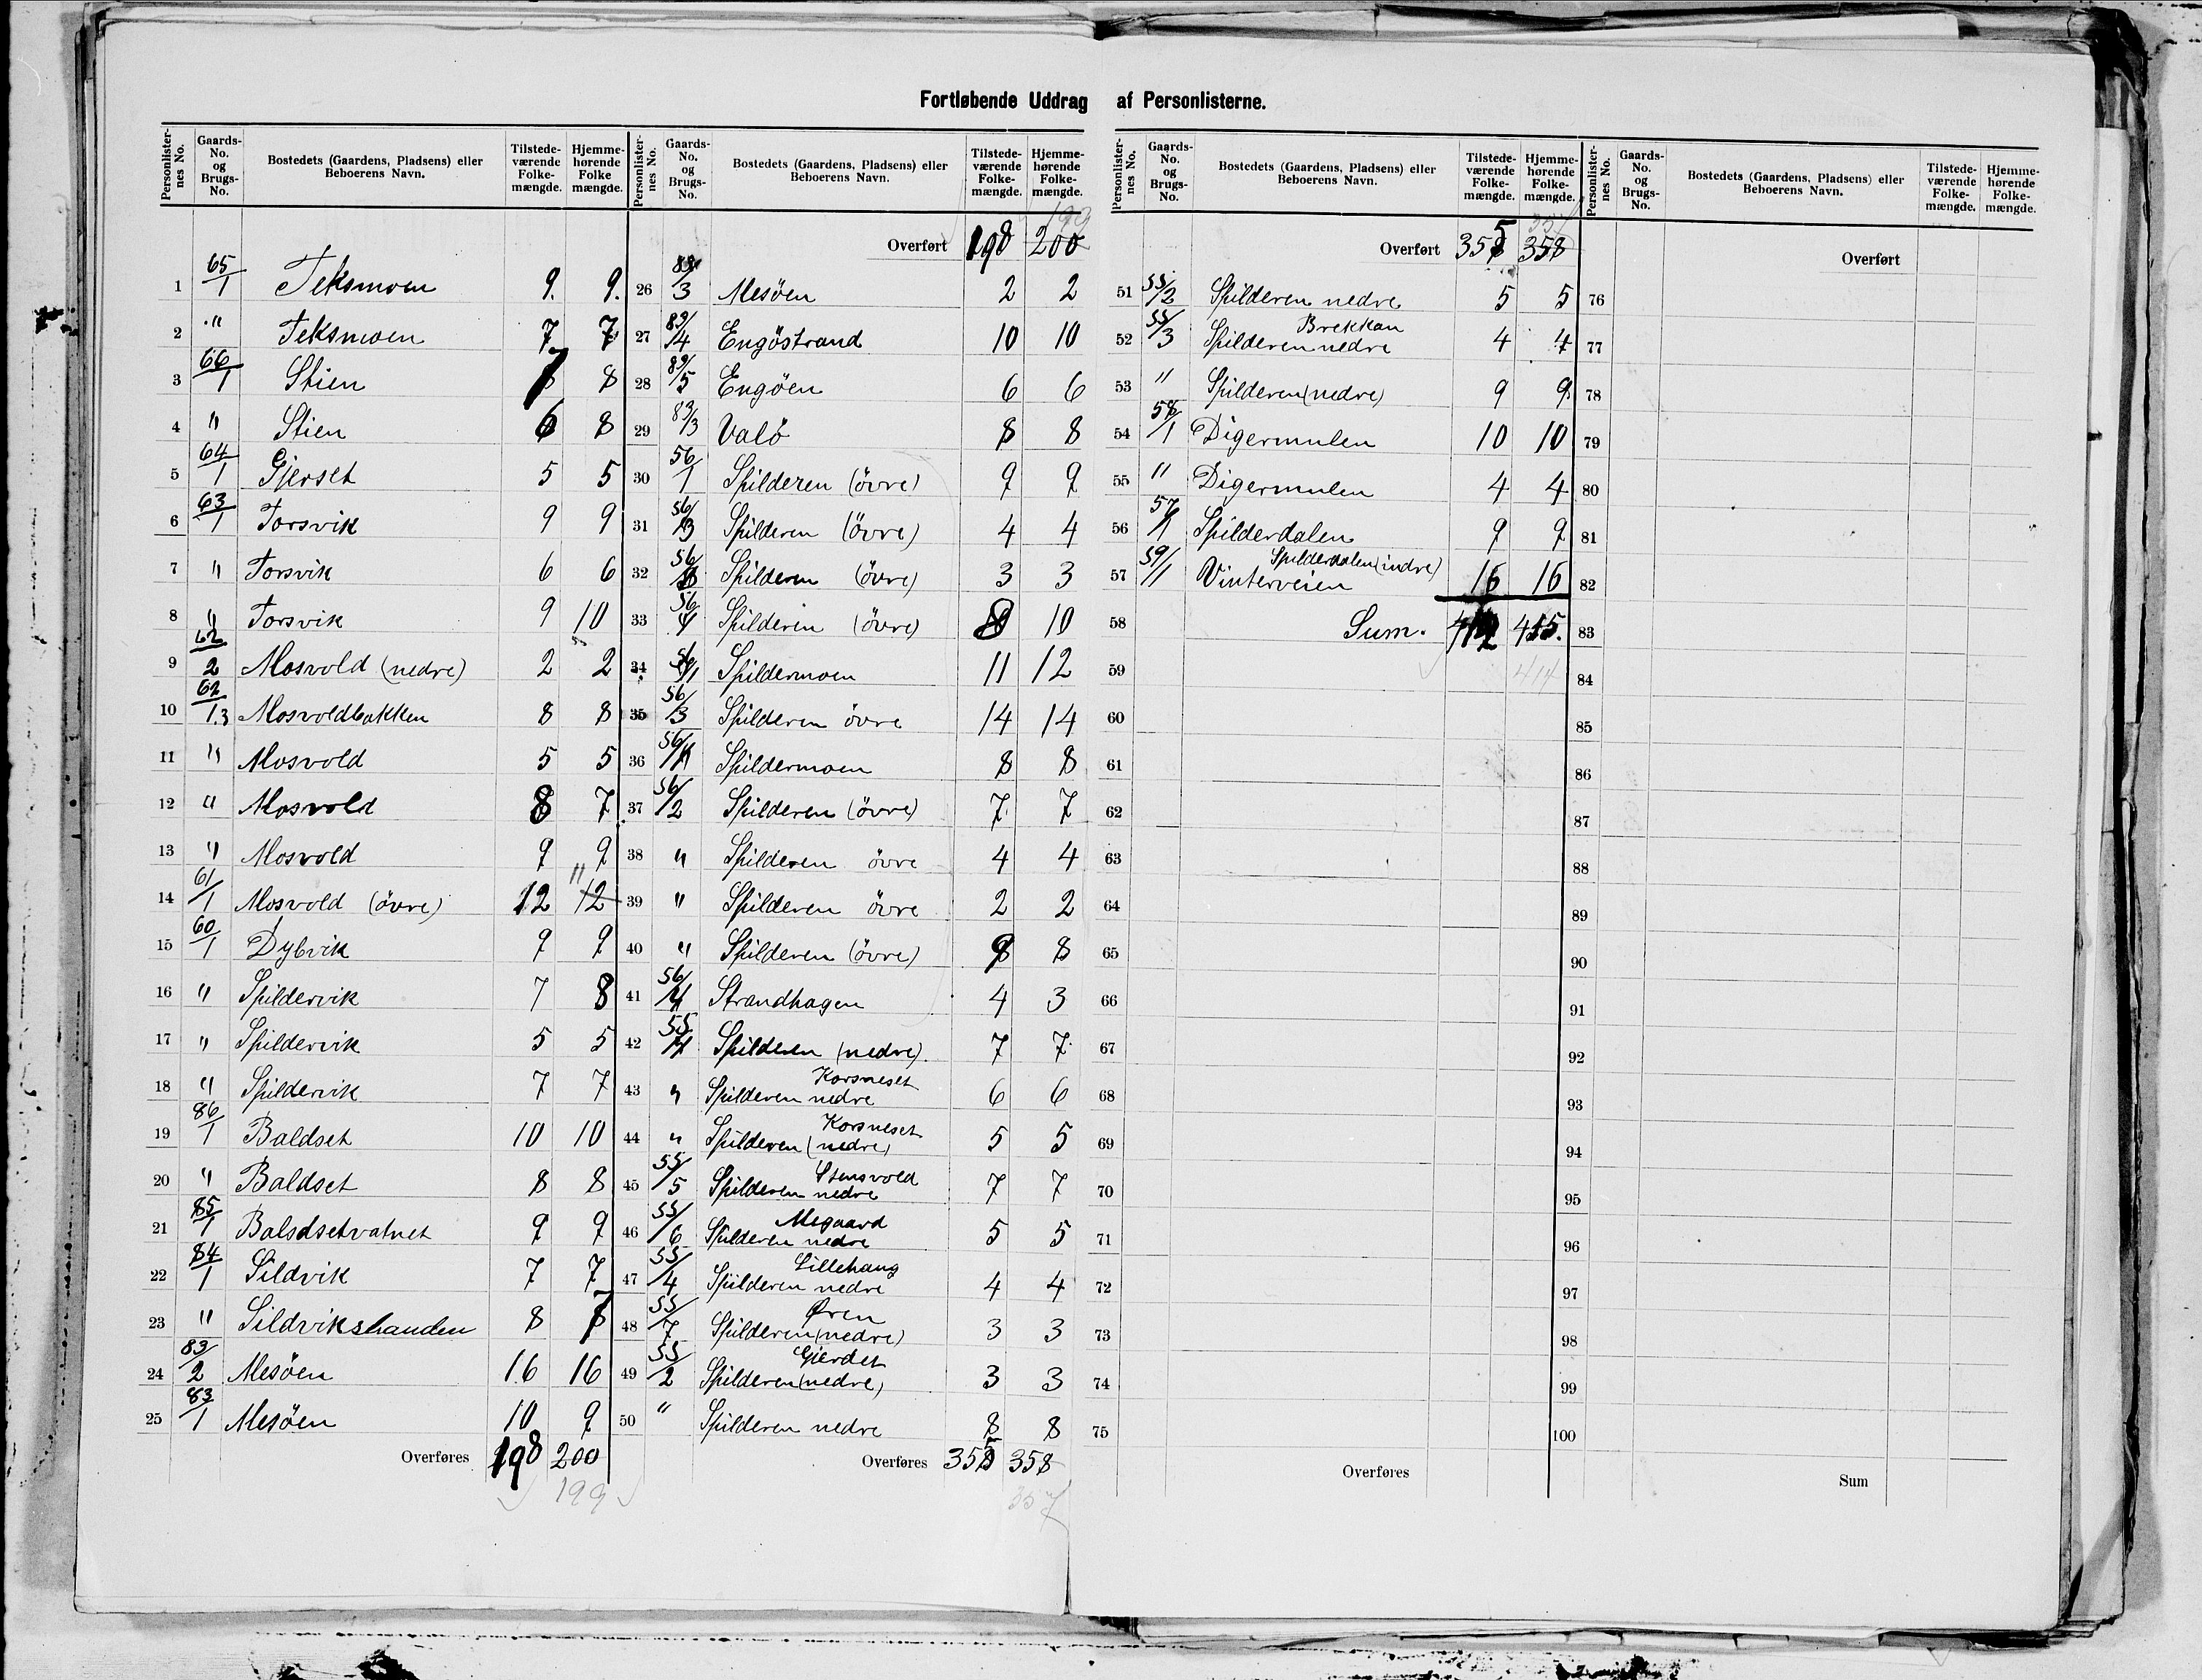 Fortløbende Uddrag af Personlisterne.
Personlisternes No. Gaards-No. og Brugs-No. Bostedets (Gaardens, Pladsens) eller Beboerens Navn. Tilstedeværende Folkemængde. Hjemmehørende Folkemængde.
1 65/1 Teksmoen 9. 9.
2 " Teksmoen 7 7
3 66/1 Stien 7 8
4 " Stien 6 8
5 64/1 Gjerset 5 5
6 63/1 Torsvik 9 9
7 " Torsvik 6 6
8 " Torsvik 9 10
9 62/2 Mosvold (nedre) 2 2
10 62/1.3 Mosvoldbakken 8 8
11 " Mosvold 5 5
12 " Mosvold 8 7
13 " Mosvold 9 9
14 61/1 Mosvold (övre) 12 11 12
15 60/1 Dybvik 9 9
16 " Spildervik 7 8
17 " Spildervik 5 5
18 " Spildervik 7 7
19 86/1 Baldset 10 10
20 " Baldset 8 8
21 85/1 Balsdsetvatnet 9 9
22 84/1 Sildvik 7 7
23 " Sildvikshanden 8 7
24 83/2 Mesöen 16 16
25 83/1 Mesöen 10 9
Overføres 198 200
199
Personlisternes No. Gaards-No. og Brugs-No. Bostedets (Gaardens, Pladsens) eller Beboerens Navn. Tilstedeværende Folkemængde. Hjemmehørende Folkemængde.
199
Overført 198 200
26 83/3 Mesöen 2 2
27 83/4 Engöstrand 10 10
28 83/5 Engöen 6 6
29 83/3 Valö 8 8
30 56/1 Spilderen (övre) 9 9
31 56/3 Spilderen (övre) 4 4
32 56/ Spilderen (övre) 3 3
33 56/4 Spilderen (övre) 8 10
34 Spildermoen 11 12
35 56/3 Spilderen övre 14 14
36 56/ Spildermoen 8 8
37 56/2 Spilderen (övre) 7 7
38 " Spilderen övre 4 4
39 " Spilderen övre 2 2
40 " Spilderen (övre) 8 8
41 56/4 Strandhagen 4 3
42 55/ Spilderen (nedre). 7 7
43 " Korsneset Spilderen nedre 6 6
44 " Korsneset Spilderen (nedre) 5 5
45 55/5 Stensvold Spilderen nedre 7 7
46 55/6 Megaard Spilderen nedre 5 5
47 55/4 Lillehaug Spilderen nedre 4 4
48 55/7 Øren Spilderen (nedre) 3 3
49 55/2 Gjerdet Spilderen (nedre) 3 3
50 " Spilderen nedre 8 8
Overføres 355 358
357
Personlisternes No. Gaards-No. og Brugs-No. Bostedets (Gaardens, Pladsens) eller Beboerens Navn. Tilstedeværende Folkemængde. Hjemmehørende Folkemængde.
357
Overført 355 358
51 55/2 Spilderen nedre 5 5
52 55/3 Brekkan Spilderen nedre 4 4
53 " Spilderen (nedre) 9 9
54 58/1 Digermulen 10 10
55 " Digermulen 4 4
56 57/1 Spilderdalen 9 9
57 59/1 Spilderdalen (indre) Vinterveien 16 16
58 Sum. 412 415.
59 414
60
61
62
63
64
65
66
67
68
69
70
71
72
73
74
75
Overføres
Personlisternes No. Gaards-No. og Brugs-No. Bostedets (Gaardens, Pladsens) eller Beboerens Navn. Tilstedeværende Folkemængde. Hjemmehørende Folkemængde.
Overført
76
77
78
79
80
81
82
83
84
85
86
87
88
89
90
91
92
93
94
95
96
97
98
99
100
Sum